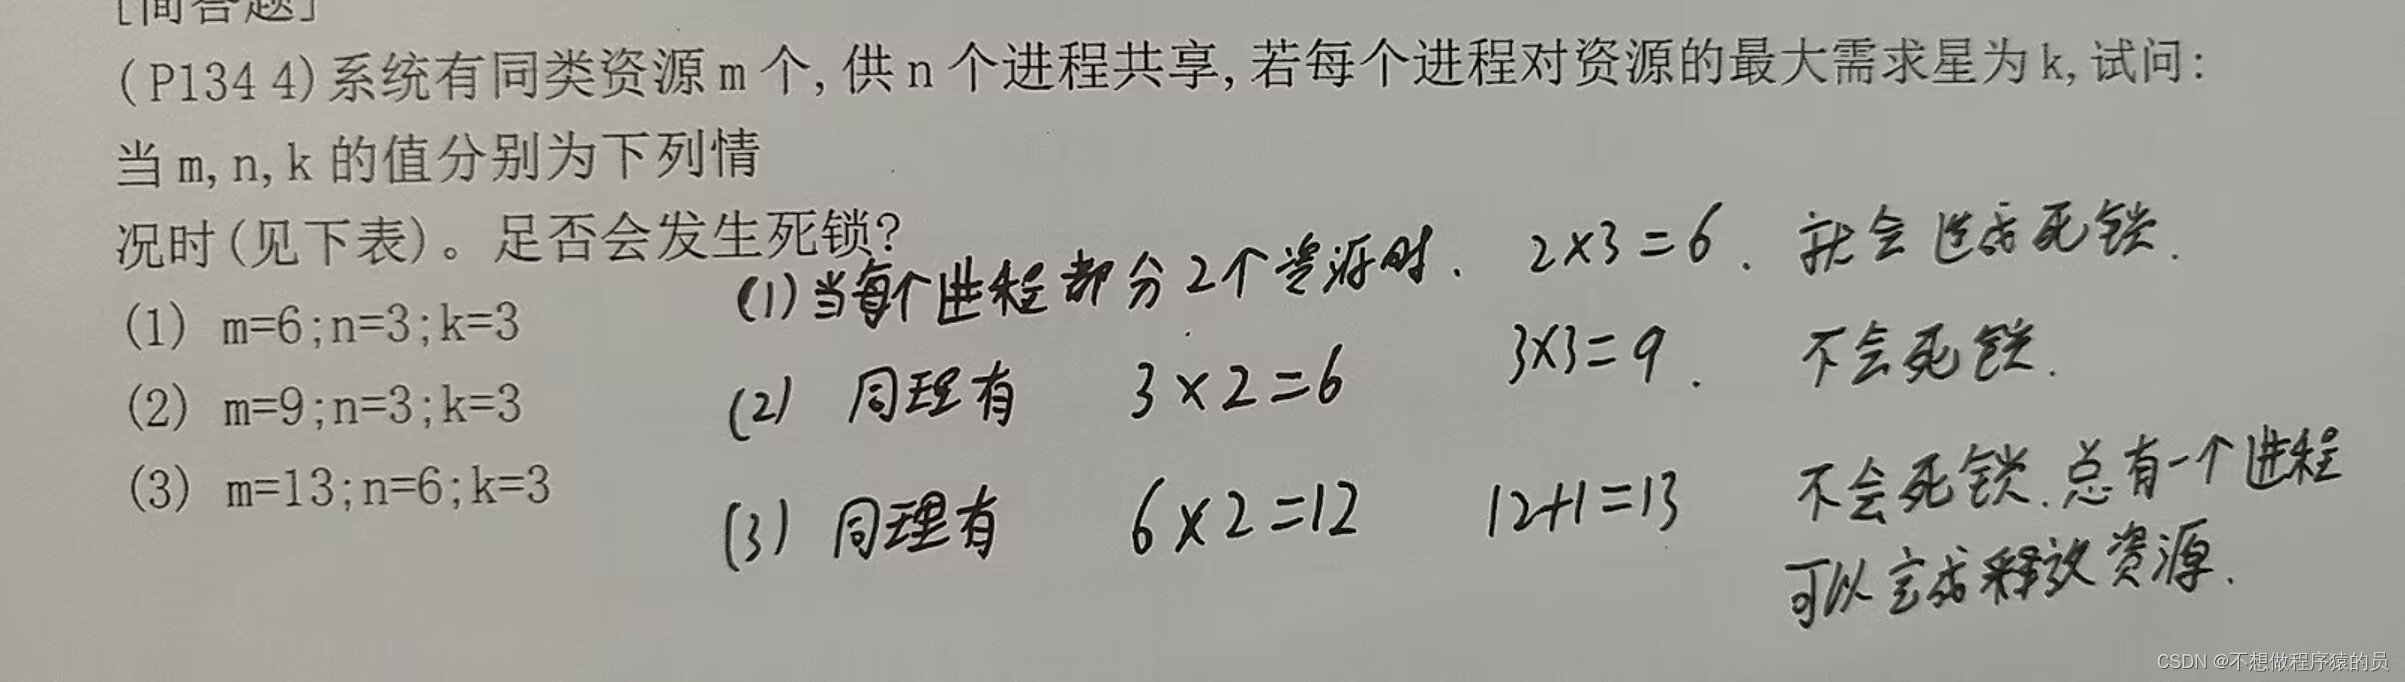 [简答题]
(P134 4)系统有同类资源m个,供n个进程共享,若每个进程对资源的最大需求星为k,试问:
当m,n,k的值分别为下列情
况时(见下表)。足否会发生死锁?
(1) m=6;n=3;k=3
(2) m=9;n=3;k=3
(3) m=13;n=6;k=3
(1)当每个进程都分2个资源时. 2×3=6. 就会造成死锁.
(2) 同理有 3×2=6 3×3=9. 不会死锁.
(3) 同理有 6×2=12 12+1=13 不会死锁.总有一个进程
可以完成释放资源.
CSDN @不想做程序猿的员